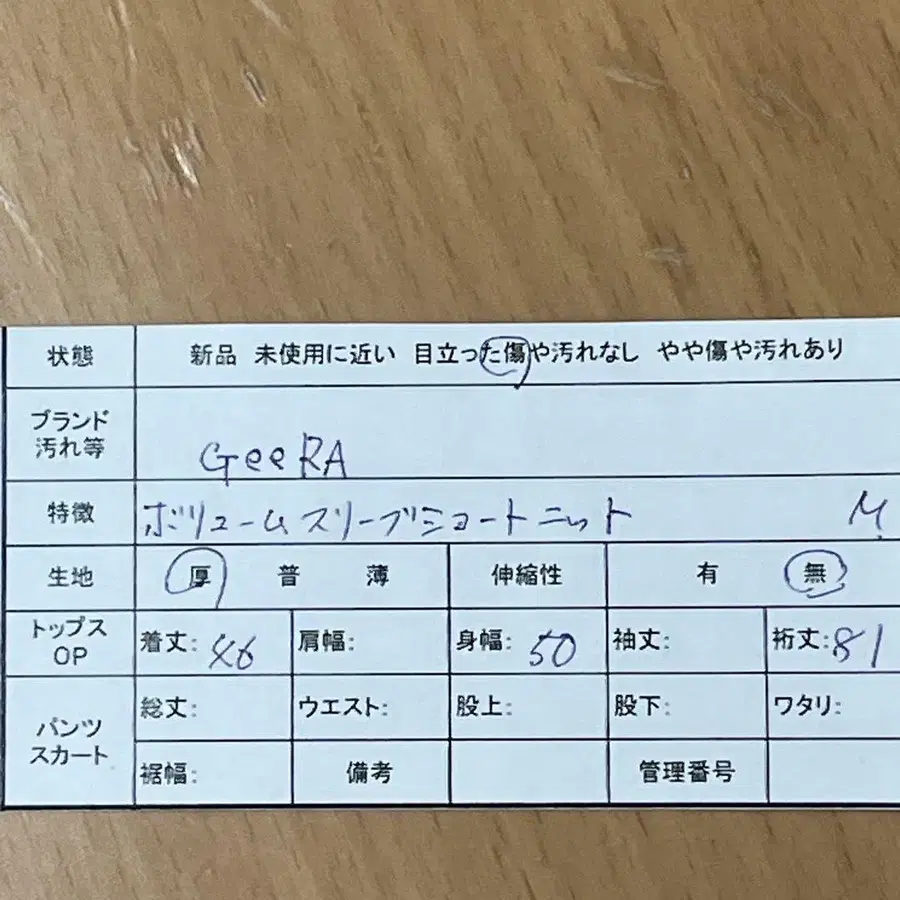 状態 新品 未使用に近い 目立った傷や汚れなし やや傷や汚れあり
ブランド
汚れ等
GeeRA
特徴 ボリュームスリーブショートニット M
生地 厚 普 薄 伸縮性 有 無
トップス
OP
着丈: 46 肩幅: 身幅: 50 袖丈: 裄丈: 81
パンツ
スカート
総丈: ウエスト: 股上: 股下: ワタリ:
裾幅: 備考 管理番号